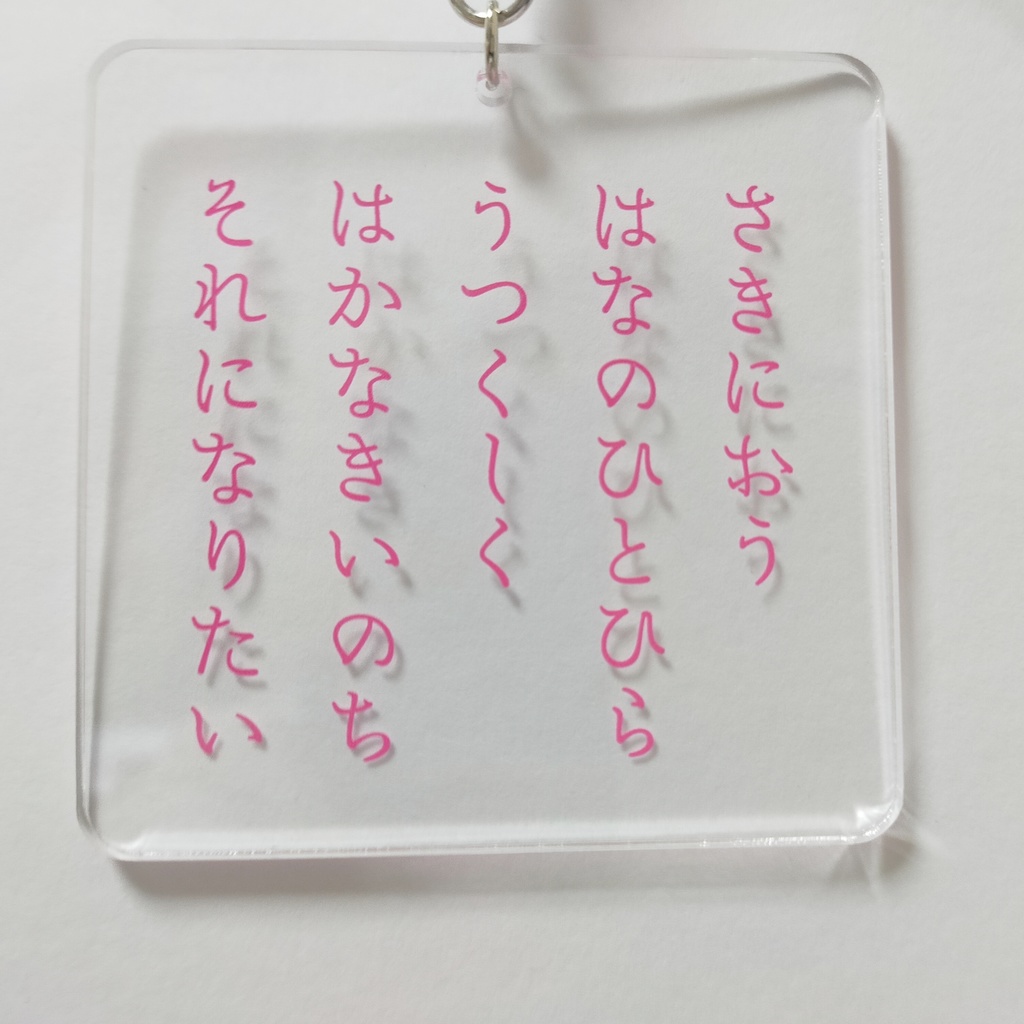 さきにおう
はなのひとひら
うつくしく
はかなきいのち
それになりたい